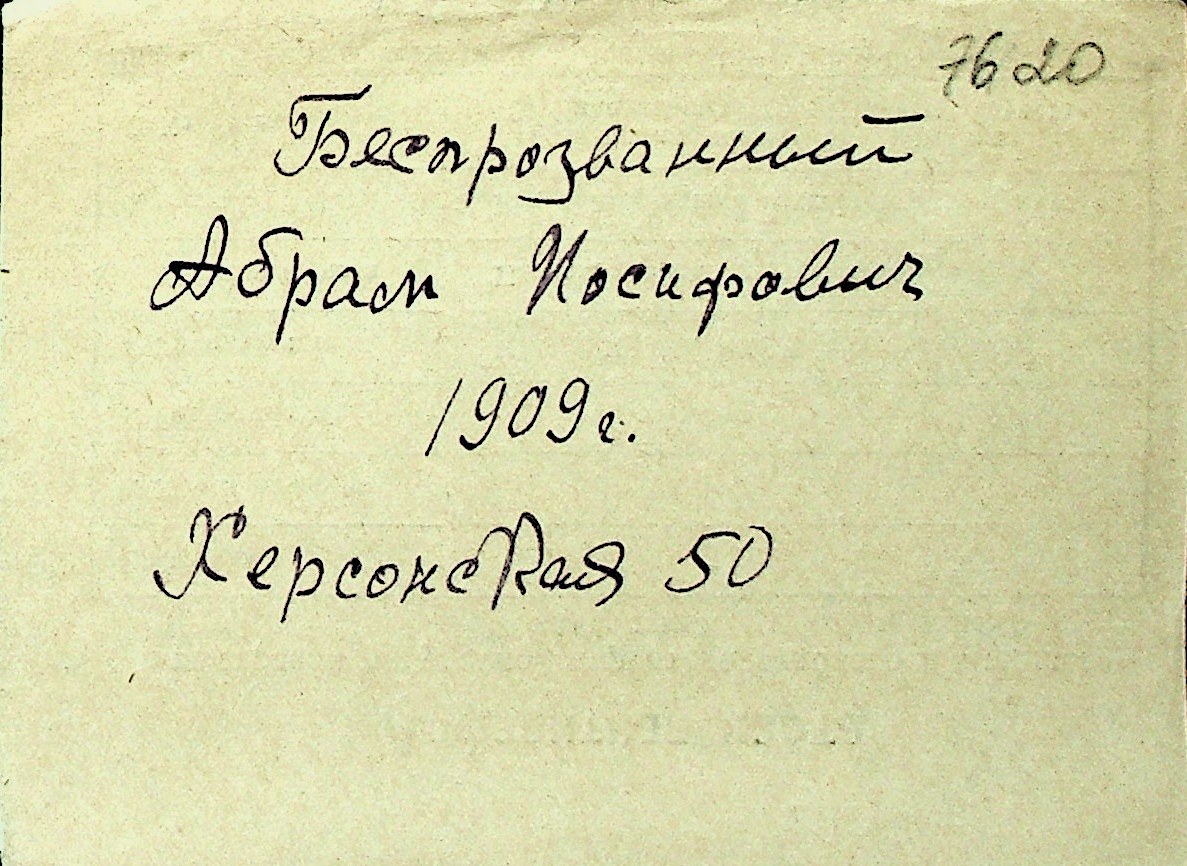 7620
Беспрозванный
Абрам Иосифович
1909г.
Херсонская 50